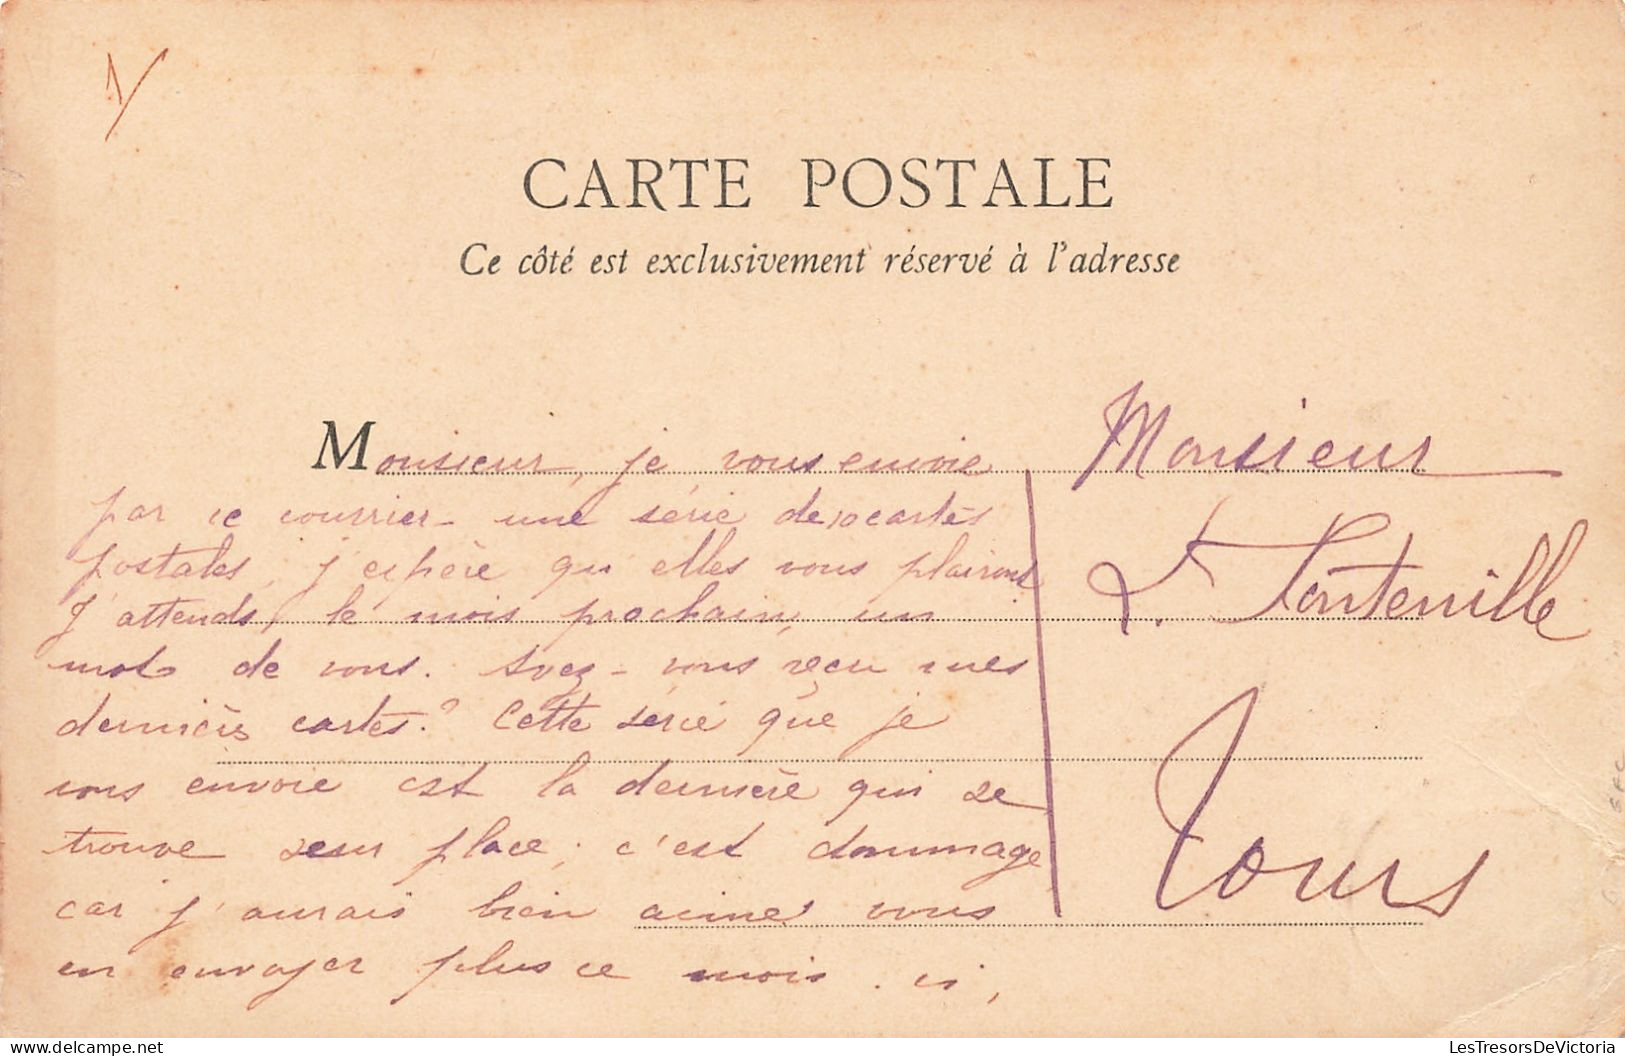 1/
CARTE POSTALE
Ce côté est exclusivement réservé à l'adresse
Monsieur, je vous envoie
par ce courrier une série de 10 cartes
postales, j'espère qu'elles vous plairont
J'attends, le mois prochain, un
mot de vous. Avez-vous reçu mes
dernières cartes ? Cette série que je
vous envoie est la dernière qui se
trouve sur place ; c'est dommage
car j'aurais bien aimé vous
en envoyer plus ce mois. ci,
Monsieur
Fonteville
Tours
LesTresorsDeVictoria